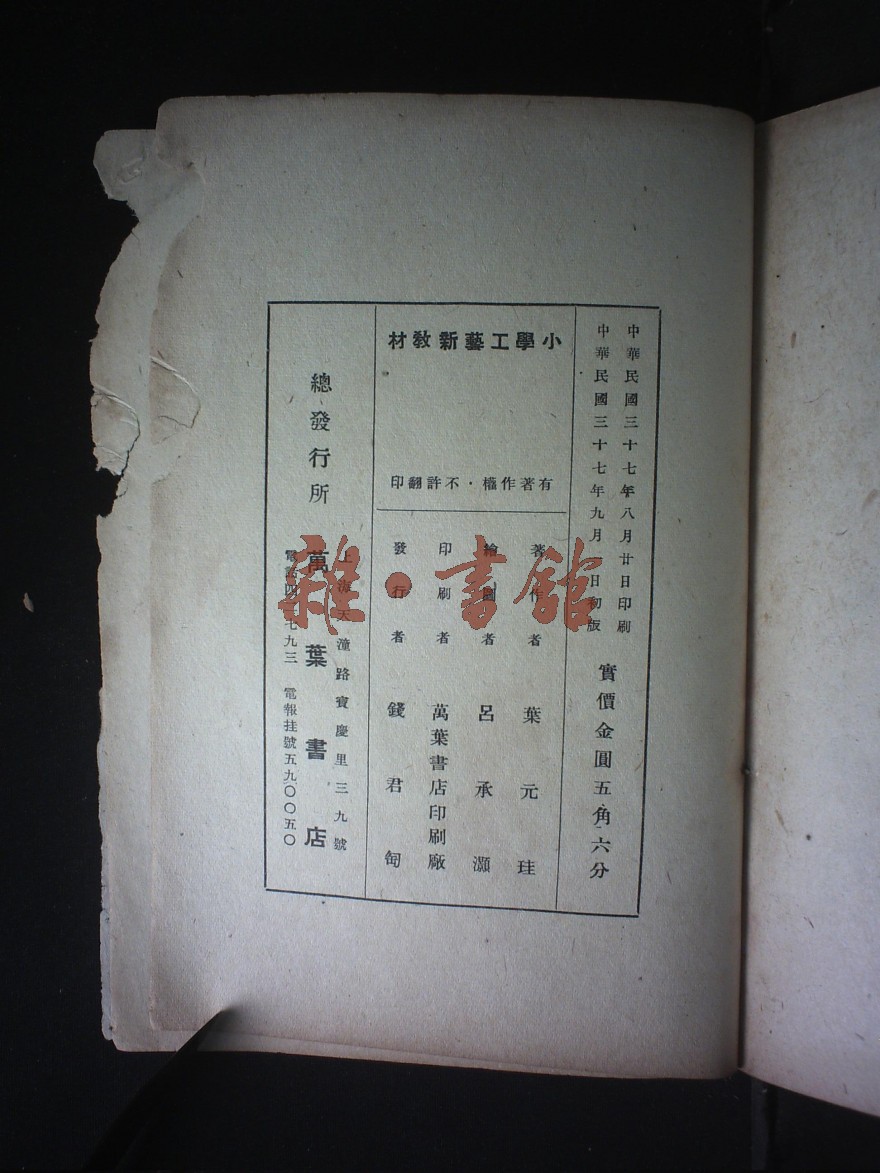 中華民國三十七年八月廿日印刷
中華民國三十七年九月一日初版
實價金圓五角六分
小學工藝新教材
有著作權・不許翻印
著作者 葉元珪
繪圖者 呂承灝
印刷者 萬葉書店印刷廠
發行者 錢君匋
總發行所 萬葉書店
上海天潼路寶慶里三九號
電話四 七九三 電報挂號五九〇〇五〇
雜・書館